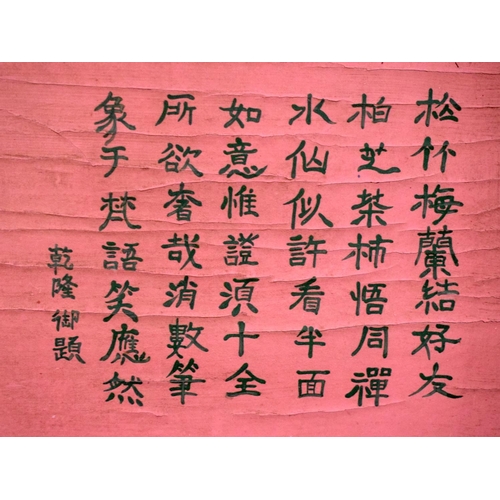 松竹梅蘭結好友
柏芝荣柿悟同禪
水仙似許看半面
如意惟證須十全
所欲奢哉消數筆
象于梵語笑應然
乾隆御題